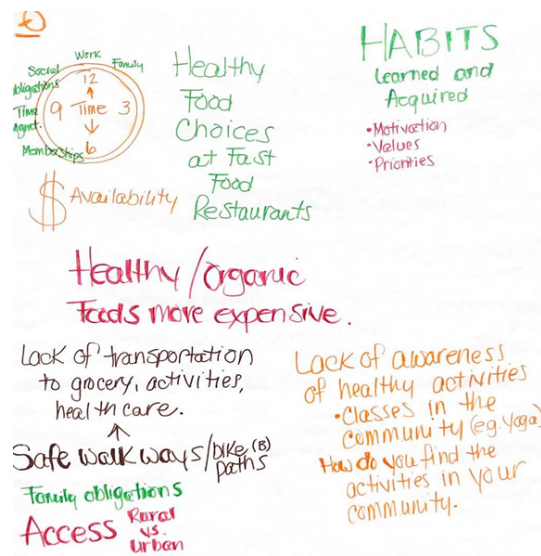 Work
Social Family
obligations
12
9 Time 3
Time
Mgmt.
Memberships 6
$ Availability
Healthy
Food
Choices
at Fast
Food
Restaurants
HABITS
Learned and
Acquired
•Motivation
•Values
•Priorities
Healthy/organic
Foods more expensive.
Lack of transportation
to grocery, activities,
health care.
Safe walkways/bike (B)
paths
Family obligations
Access Rural
vs.
Urban
Lack of awareness
of healthy activities
•Classes in the
community (eg. Yoga)
How do you find the
activities in your
community.